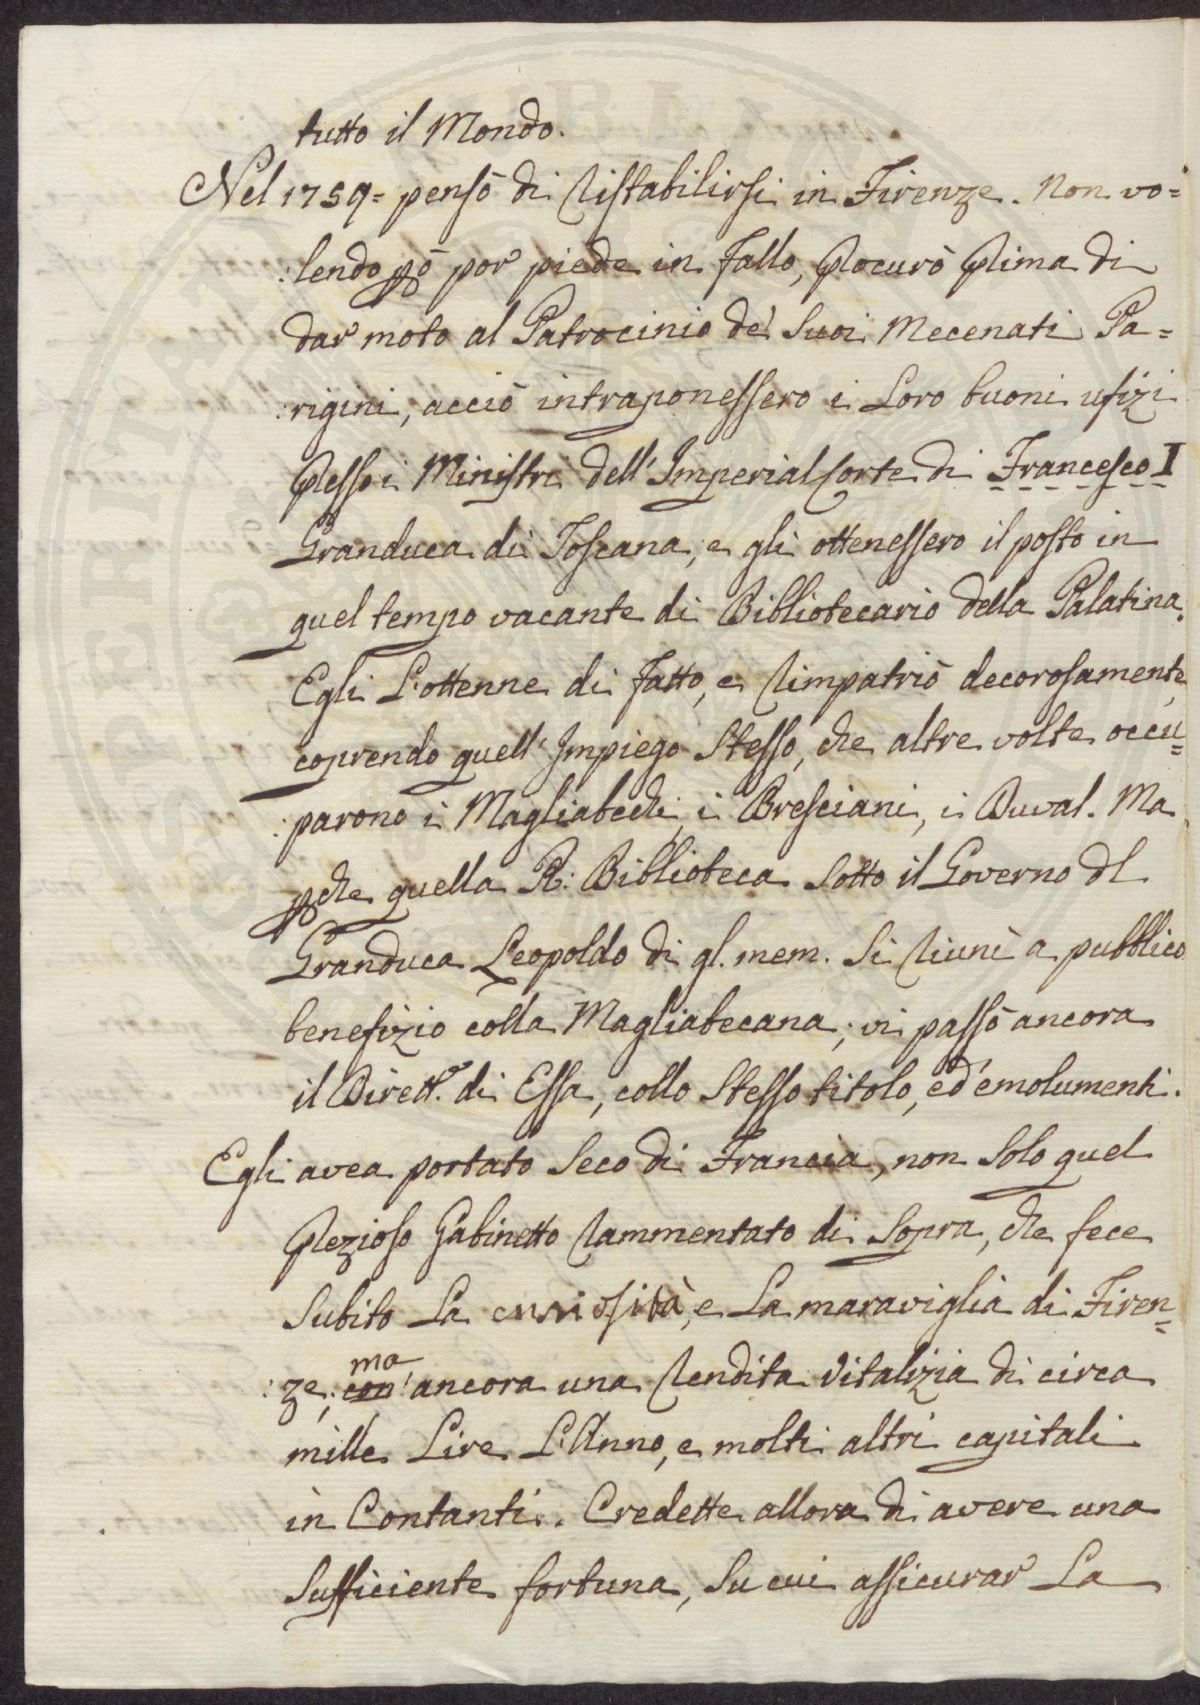 tutto il Mondo.
Nel 1759= pensò di ristabilirsi in Firenze. Non vo=
:lendo pò por piede in fallo, procurò prima di
dar moto al Patrocinio de' Suoi Mecenati Pa=
:rigini, acciò intraponessero i Loro buoni ufizi
presso i Ministri dell' Imperial Corte di Francesco I
Granduca di Toscana, e gli ottenessero il posto in
quel tempo vacante di Bibliotecario della Palatina.
Egli L'ottenne di fatto, e rimpatriò decorosamente,
coprendo quell' Impiego Stesso, che altre volte occu=
:parono i Magliabechi, i Bresciani, i Duval. Ma
pche quella R: Biblioteca Sotto il Governo dl
Granduca Leopoldo di gl. mem. Si riunì a pubblico
benefizio colla Magliabecana; vi passò ancora
il Dirett.e di Essa, collo Stesso titolo, ed emolumenti.
Egli avea portato Seco di Francia, non Solo quel
prezioso Gabinetto rammentato di Sopra, che fece
Subito La curiosità, e La maraviglia di Firen=
:ze; con' ma ancora una rendita Vitalizia di circa
mille Lire L'Anno, e molti altri capitali
in Contanti. Credette allora di avere una
Sufficiente fortuna, Su cui assicurar La